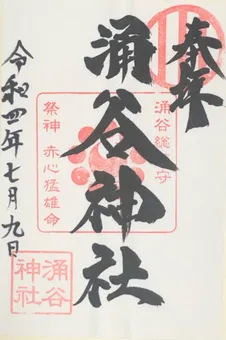 奉拝
涌谷神社
涌谷総守
祭神 赤心猛雄命
令和四年七月九日
涌谷
神社